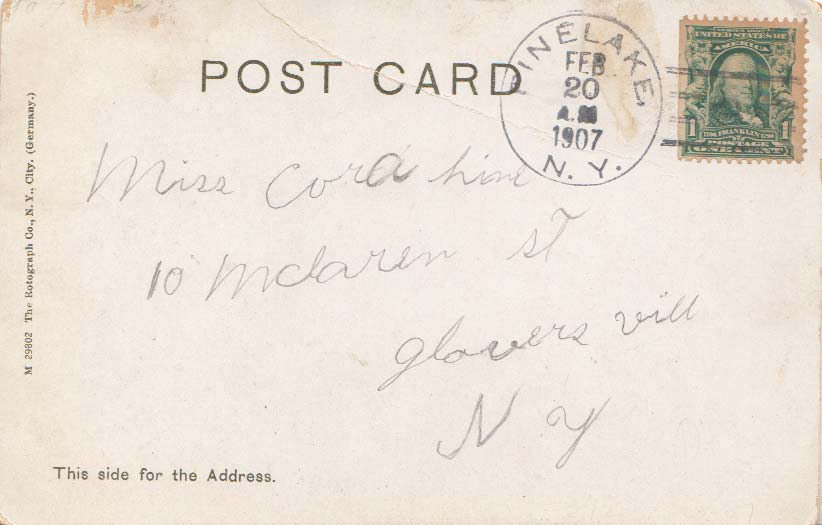 POST CARD
PINELAKE,
FEB
20
A.M
1907
N. Y.
SERIES 1902
UNITED STATES OF
AMERICA
1 FRANKLIN 1
POSTAGE
ONE CENT
Miss Cora
10 Mclaren st
glovers vill
N Y
M 29802 The Rotograph Co., N. Y., City. (Germany.)
This side for the Address.